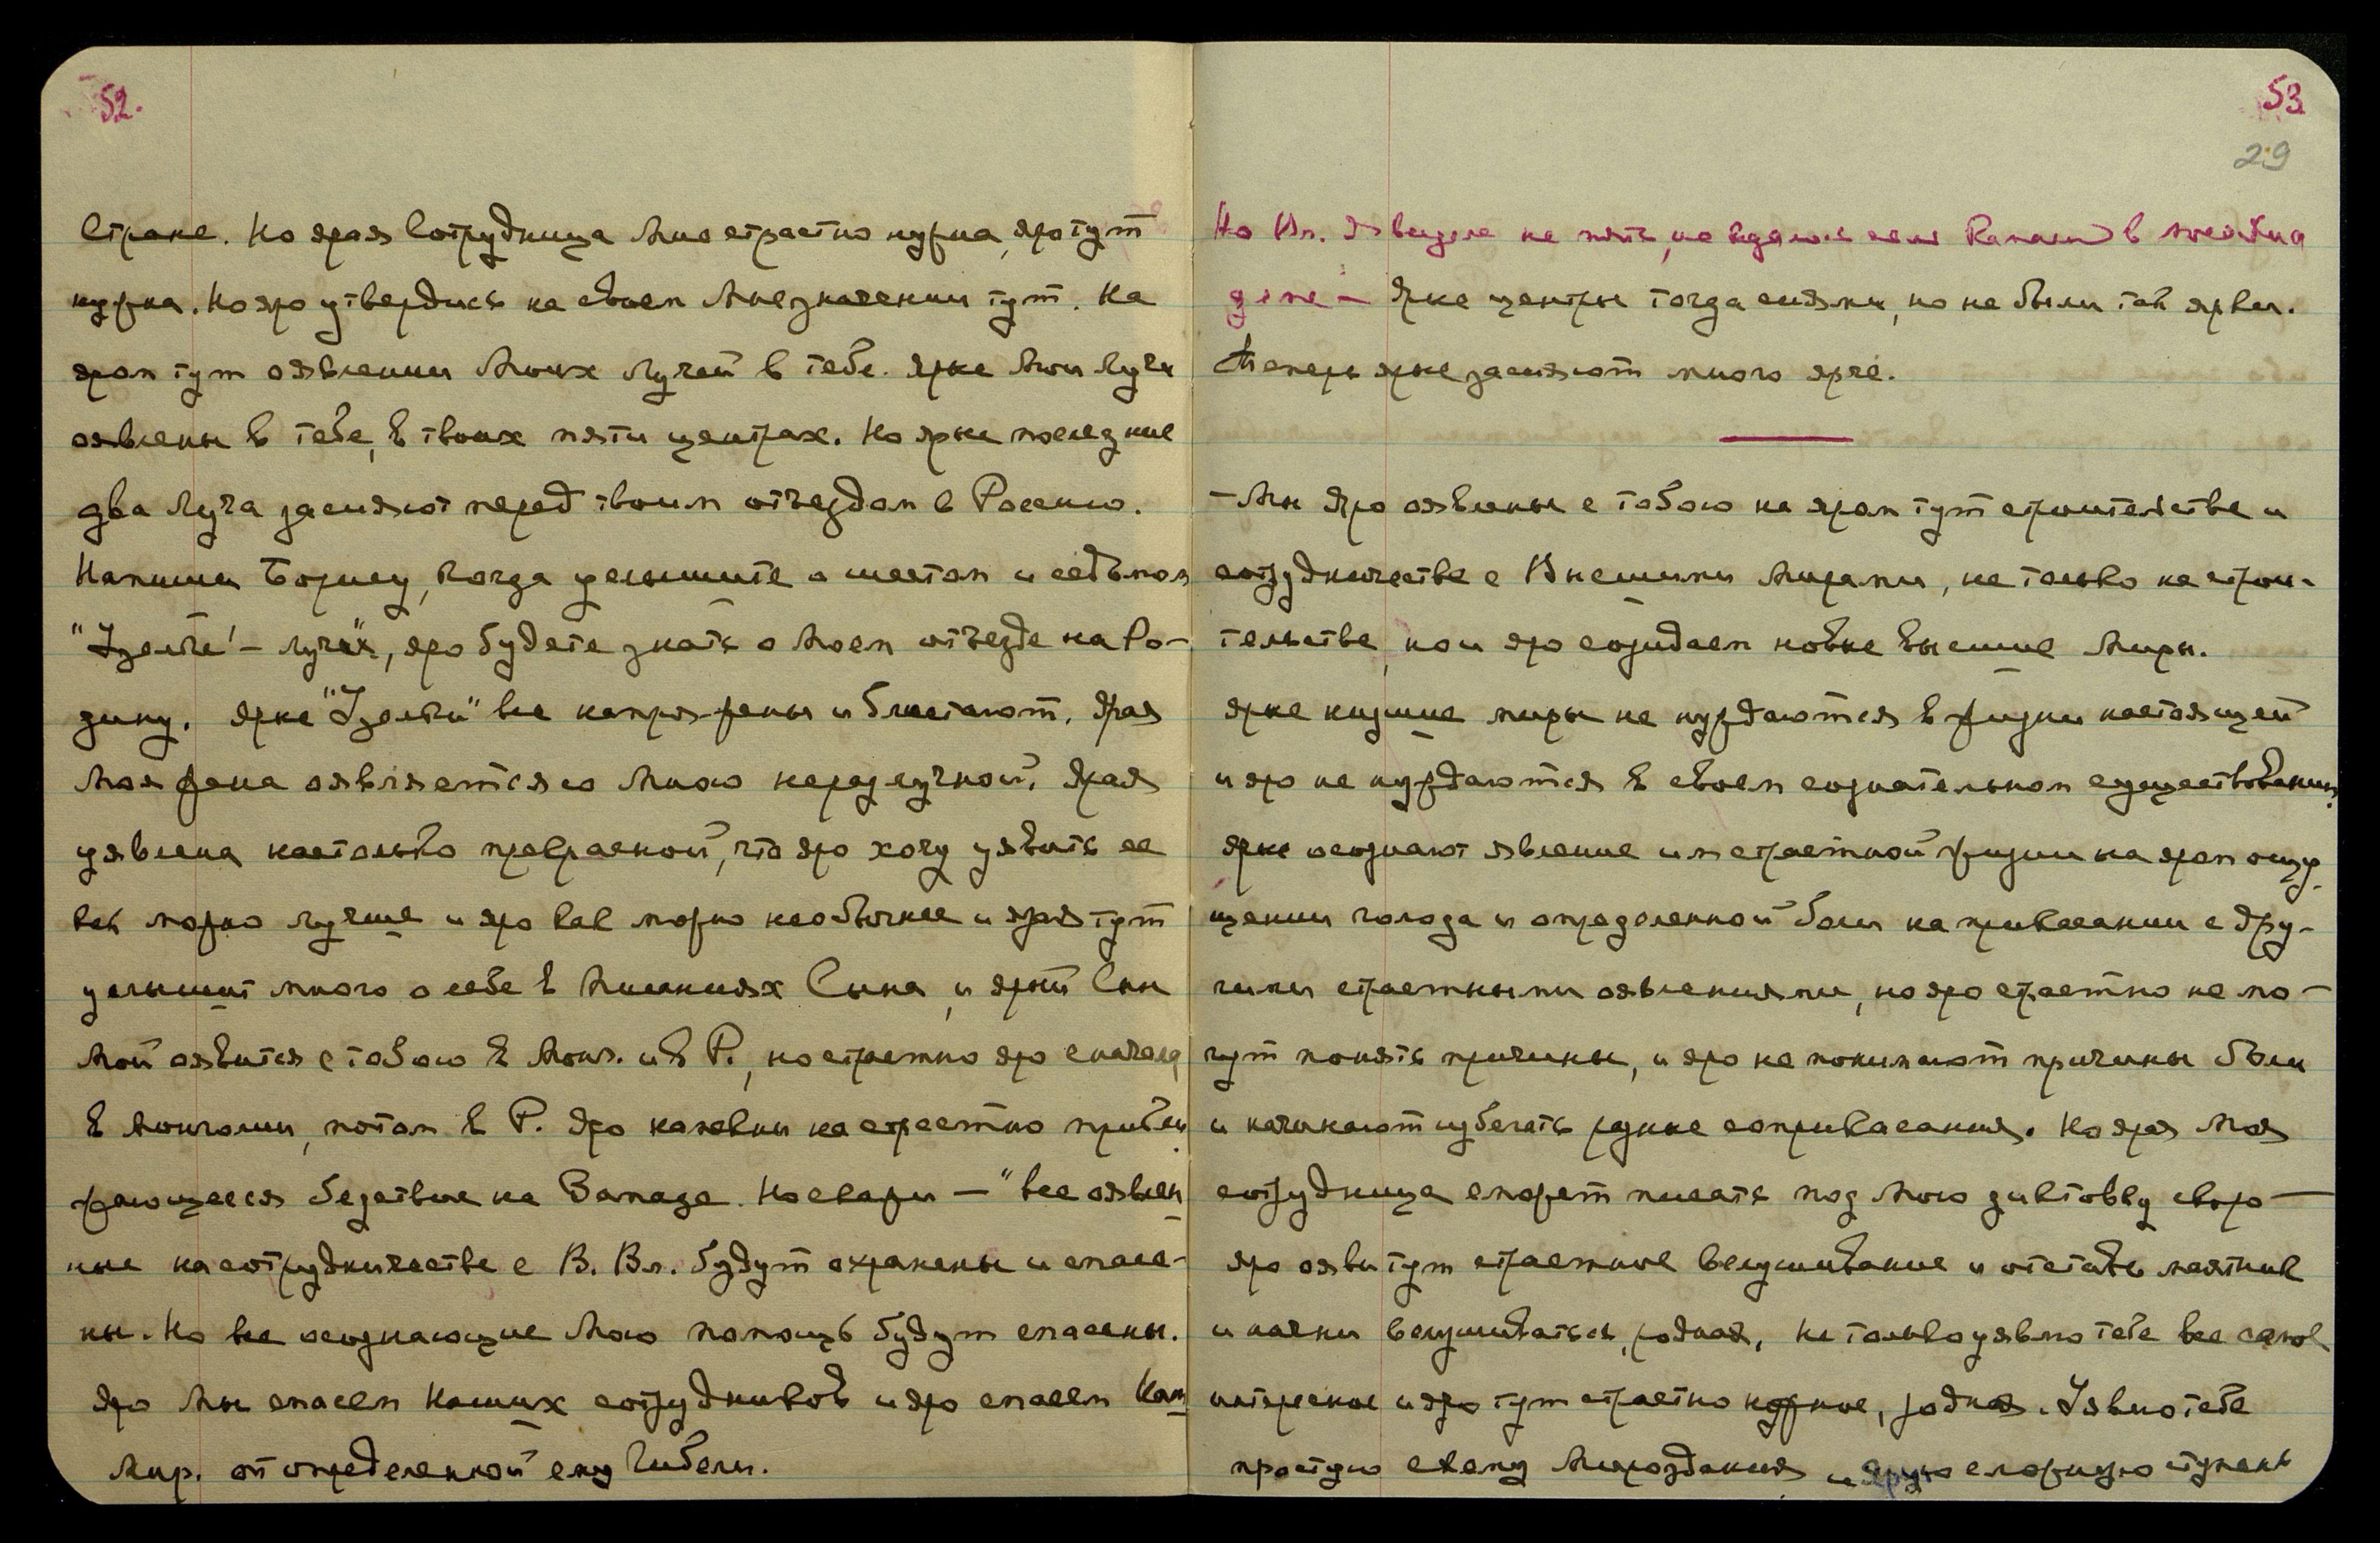 52.
Стране. Но ярая Сотрудница Мне страстно нужна, яро тут
нужна. Но яро утвердись на своем Мне значении тут. На
яром тут оявлении Моих Лучей в тебе. Ярые Мои Лучи
оявлены в тебе, в твоих пяти центрах. Но ярые последние
два Луча засияют перед твоим отъездом в Россию.
Напиши Борису, когда услышите о шестом и седьмом
лучах, яро будете знать о Моем отъезде на Ро-
дину. Ярые все напряжены и блистают. Ярая
Моя жена оявляется со Мною неразлучной. Ярая
уявлена настолько прекрасной, что яро хочу уявить ее
как можно лучше и яро как можно необычнее и ярая тут
услышит много о себе в Писаниях Сына, и ярый Сын
Мой оявится с тобою в Монг. и в Р., но страстно яро сначала
в Монголии, потом в Р. Яро намекни на страстно прибли-
жающееся бедствие на Западе. Но скажи — "все оявлен-
ные на сотрудничестве с В. Вл. будут охранены и спасе-
ны. Но все осознающие Мою помощь будут спасены.
Яро Мы спасем Наших сотрудников и яро спасем Наш
Мир. от определенной ему Гибели.
53
29
Но Вл. Я видела не пять,
Ярые центры тогда сияли, но не были так ярки.
Теперь ярые засияют много ярче.
— Мы яро оявлены с тобою на яром тут строительстве и
сотрудничестве с Внешними Мирами, не только на строи-
тельстве, но и яро созидаем новые высшие Миры.
Ярые низшие миры не нуждаются в жизни настоящей
и яро не нуждаются в своем сознательном существовании.
Ярые осознают явление им страстной жизни на яром ощу-
щении голода и определенной боли на прикасании с дру-
гими страстными оявлениями, но яро страстно не мо-
гут понять причины, и яро не понимают причины боли
и начинают избегать разные соприкасания. Но ярая Моя
сотрудница сможет писать под Мою диктовку скоро —
яро ояви тут страстное вслушивание и отставь маятник
и начни вслушиваться, родная, не только уявлю тебе все самое
интересное и яро тут страстно нужное, родная. Уявлю тебе
простую схему Мироздания и ярую сложную ступень